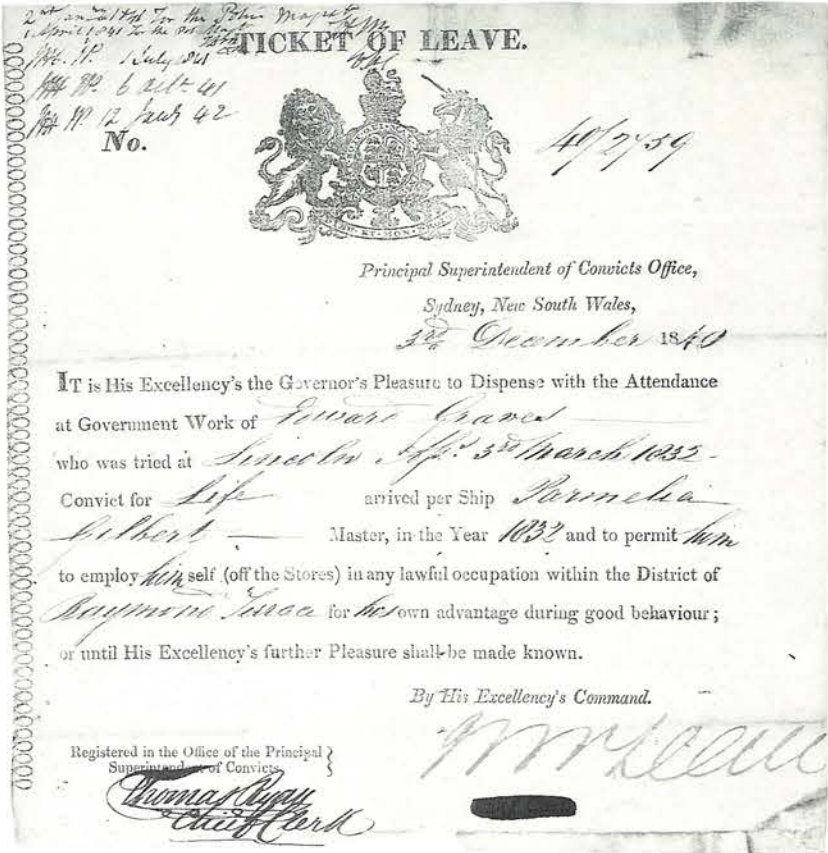 1 April 1841
1 July 1841
6 Octr 41
12 Jany 42
TICKET OF LEAVE.
No.
40/2759
Principal Superintendent of Convicts Office,
Sydney, New South Wales,
3rd December 1840
IT is His Excellency's the Governor's Pleasure to Dispense with the Attendance
at Government Work of Edward Graves
who was tried at Lincoln Ass. 3rd March 1832
Convict for Life arrived per Ship Parmelia
Gilbert Master, in the Year 1832 and to permit him
to employ him self (off the Stores) in any lawful occupation within the District of
Raymond Terrace for his own advantage during good behaviour;
or until His Excellency's further Pleasure shall be made known.
By His Excellency's Command.
Registered in the Office of the Principal
Superintendent of Convicts
Thomas Ryan
Chief Clerk